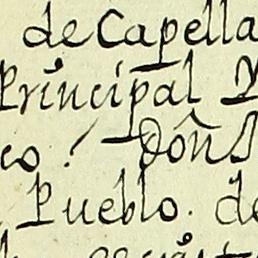 de Capella
Principal Y
co. Don
Pueblo. de